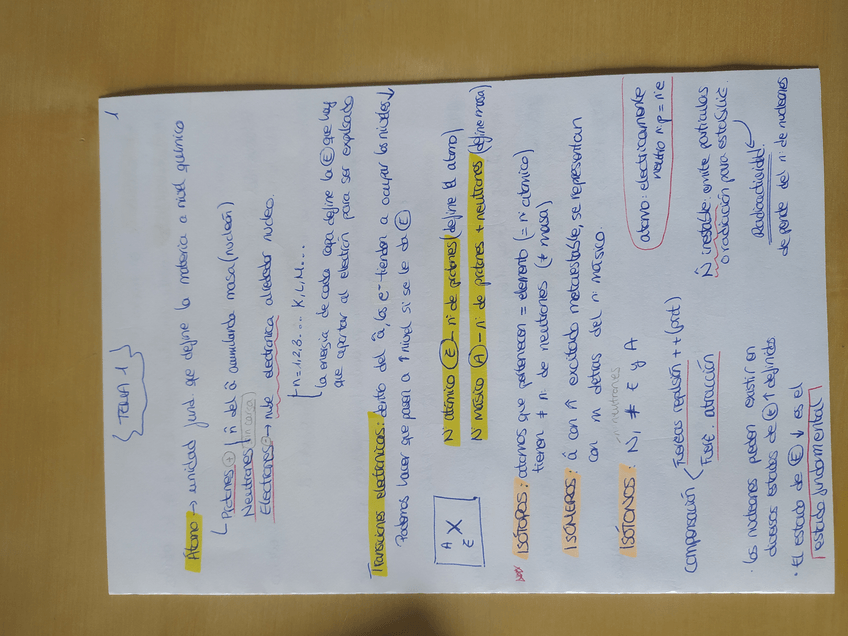 1
TEMA 1
Átomo → unidad fund. que define la materia a nivel químico
Protones + | n̂ del â acumulando masa (nucleón)
Neutrones (sin carga)
Electrones - → nube electrónica alrededor nucleo.
n = 1, 2, 3... K, L, M...
la energia de cada capa define la E que hay
que aportar al electrón para ser expulsado
Transiciones electrónicas: dentro del â, los e⁻ tienden a ocupar los niveles ↓
Podemos hacer que pasen a ↑ nivel si se le da E
A
Z X
Nº atómico Z - nº de protones (define el atomo)
Nº másico A - nº de protones + neutrones (define masa)
ISÓTOPOS: atomos que pertenecen = elemento (= nº atómico)
tienen ≠ nº de neutrones (≠ masa)
ISÓMEROS: â con n̂ excitado metaestable, se representan
con m detras del nº másico.
nº neutrones
ISÓTONOS: = N, ≠ Z y A
atomo: electricamente
neutro n:p = n:e
Compensación < Fuerzas repulsión ++ (prot)
Fuerz. atracción
N̂ inestable: emite particulas
o radiación para estabiliz.
Radioactividad
depende del nº de nucleones
· Los nucleones pueden existir en
diversos estados de E ↑ definidos
· El estado de E ↓ es el
estado fundamental